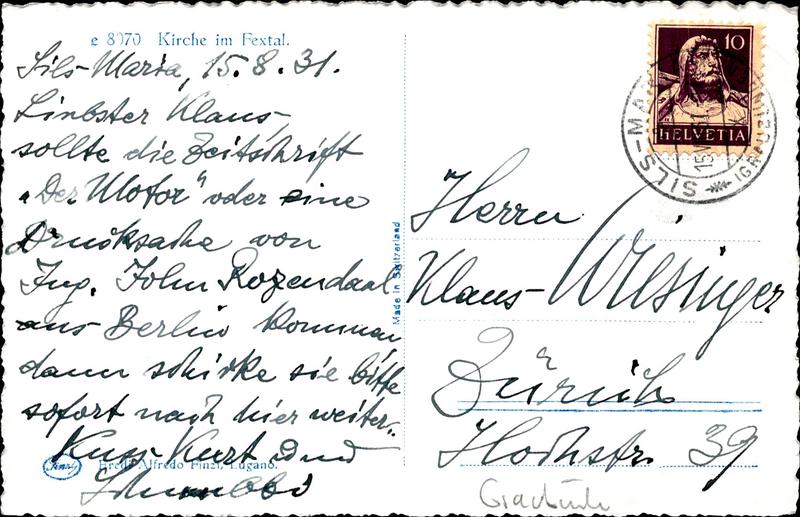 e 8070 Kirche im Fextal.
Sils-Maria, 15.8.31.
Liebster Klaus-
sollte die Zeitschrift
„Der Motor" oder eine
Drucksache von
Ing. John Rozendaal
aus Berlin kommen,
dann schicke sie bitte
sofort nach hier weiter.
Kuss- Kurt und
Fred. Alfredo Finzi, Lugano.
Finzi
Made in Switzerland
10
HELVETIA
SILS-MARIA
Herrn
Klaus-
Zürich
Hochstr. 39